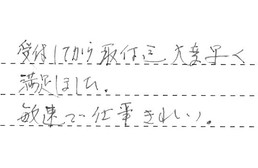 受付してから取付迄大変早く
満足しました。
敏速で仕事きれい。